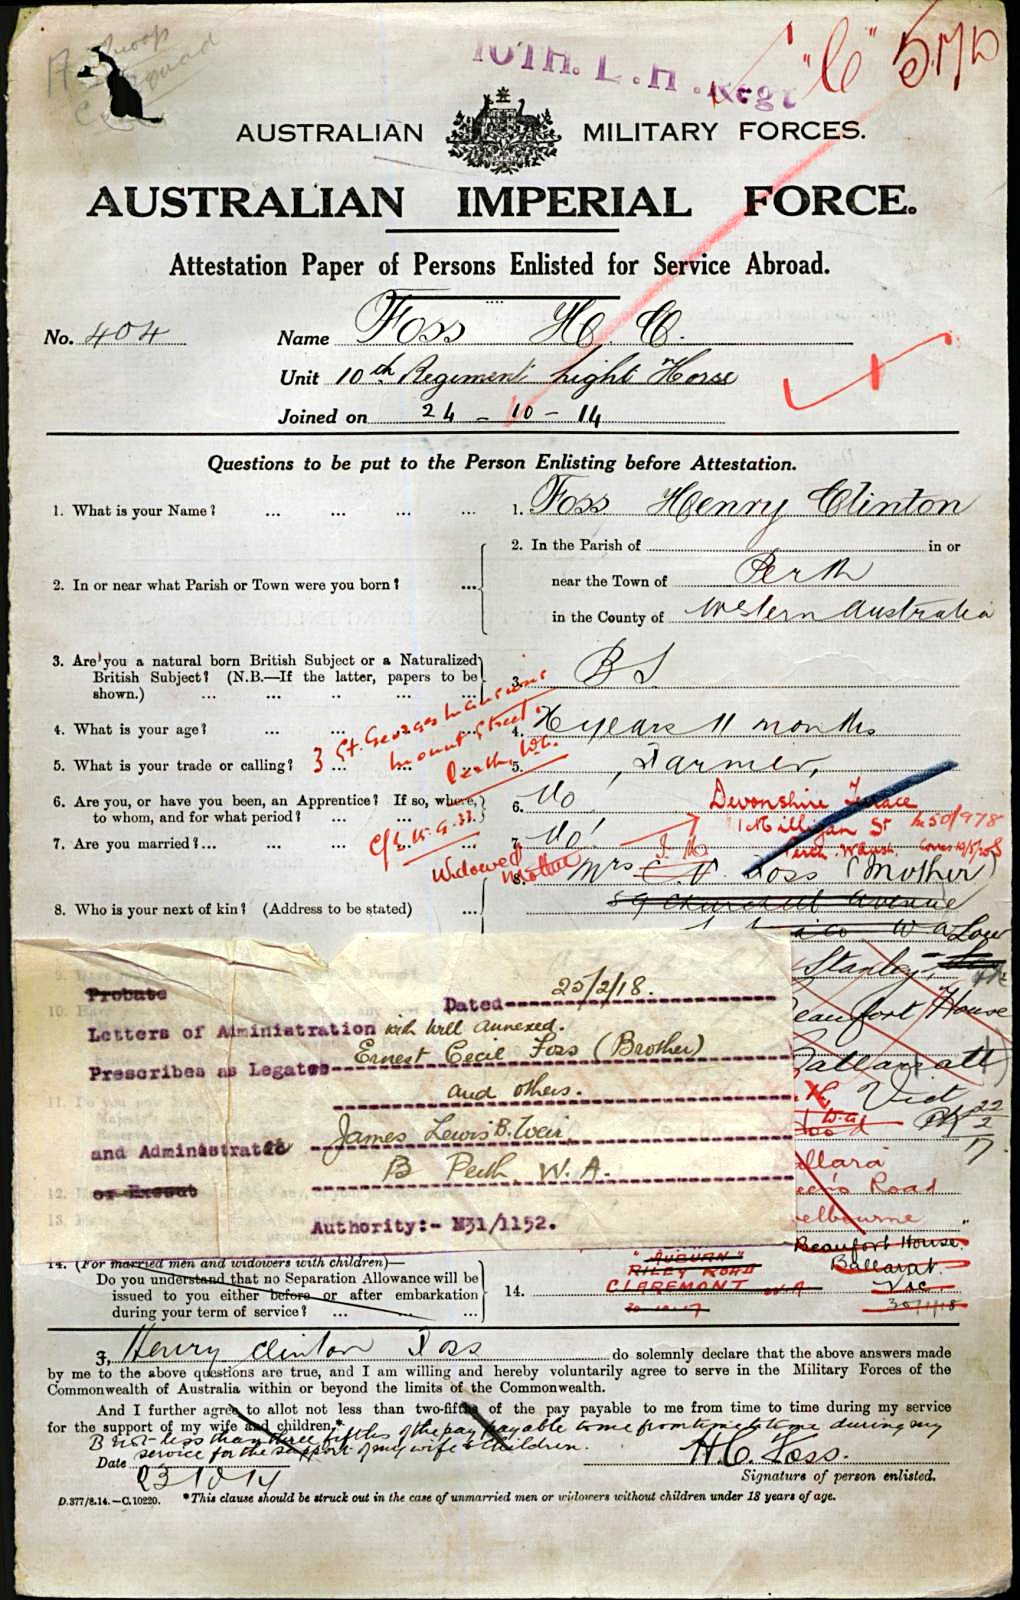 A Troop
10TH. L. H. Regt
"C" 5.17D
AUSTRALIAN MILITARY FORCES.
AUSTRALIAN IMPERIAL FORCE.
Attestation Paper of Persons Enlisted for Service Abroad.
No. 404 Name Foss H. C.
Unit 10th Regiment Light Horse
Joined on 24 - 10 - 14
Questions to be put to the Person Enlisting before Attestation.
1. What is your Name? ... ... ... ... 1. Foss Henry Clinton
2. In the Parish of in or
2. In or near what Parish or Town were you born? ... near the Town of Perth
in the County of Western Australia
3. Are you a natural born British Subject or a Naturalized
British Subject? (N.B.—If the latter, papers to be
shown.) ... ... ... ... ... 3. B S
4. What is your age? ... ... ... 4. years 11 months
3 St. Georges Mansions
Mount Street.
Perth. W.A.
5. What is your trade or calling? ... ... ... 5. Farmer,
6. Are you, or have you been, an Apprentice? If so, where,
to whom, and for what period? ... ... 6. No
Devonshire Terrace
Milligan St
Perth. W Aust.
50/978
7. Are you married?... ... ... ... ... 7. No!
Widowed
Mother
8. Mrs Foss (Mother)
8. Who is your next of kin? (Address to be stated) ... 89 Churchill Avenue
W. A
Stanley
Beaufort House
Ballarat
Vict
22/2/17
Probate Dated 25/2/18.
Letters of Administration with Will annexed.
Prescribes as Legatees Ernest Cecil Foss (Brother)
and others.
and Administrator James Lewis B. Weir
or Execut B Perth, W. A.
Authority:- N31/1152.
Road
elbourne
Beaufort House.
Ballarat.
Vic
30/1/18
14. (For married men and widowers with children)—
Do you understand that no Separation Allowance will be
issued to you either before or after embarkation
during your term of service? ... ... ... 14.
"AUBURN"
RILEY ROAD
CLAREMONT W.A
I, Henry Clinton Foss do solemnly declare that the above answers made
by me to the above questions are true, and I am willing and hereby voluntarily agree to serve in the Military Forces of the
Commonwealth of Australia within or beyond the limits of the Commonwealth.
And I further agree to allot not less than two-fifths of the pay payable to me from time to time during my service
for the support of my wife and children.*
B not less than three fifths of the pay payable to me from time to time during my
service for the support of my wife & children.
Date 23 10 14 H. C. Foss.
Signature of person enlisted.
D.377/8.14.—C.10220. *This clause should be struck out in the case of unmarried men or widowers without children under 18 years of age.